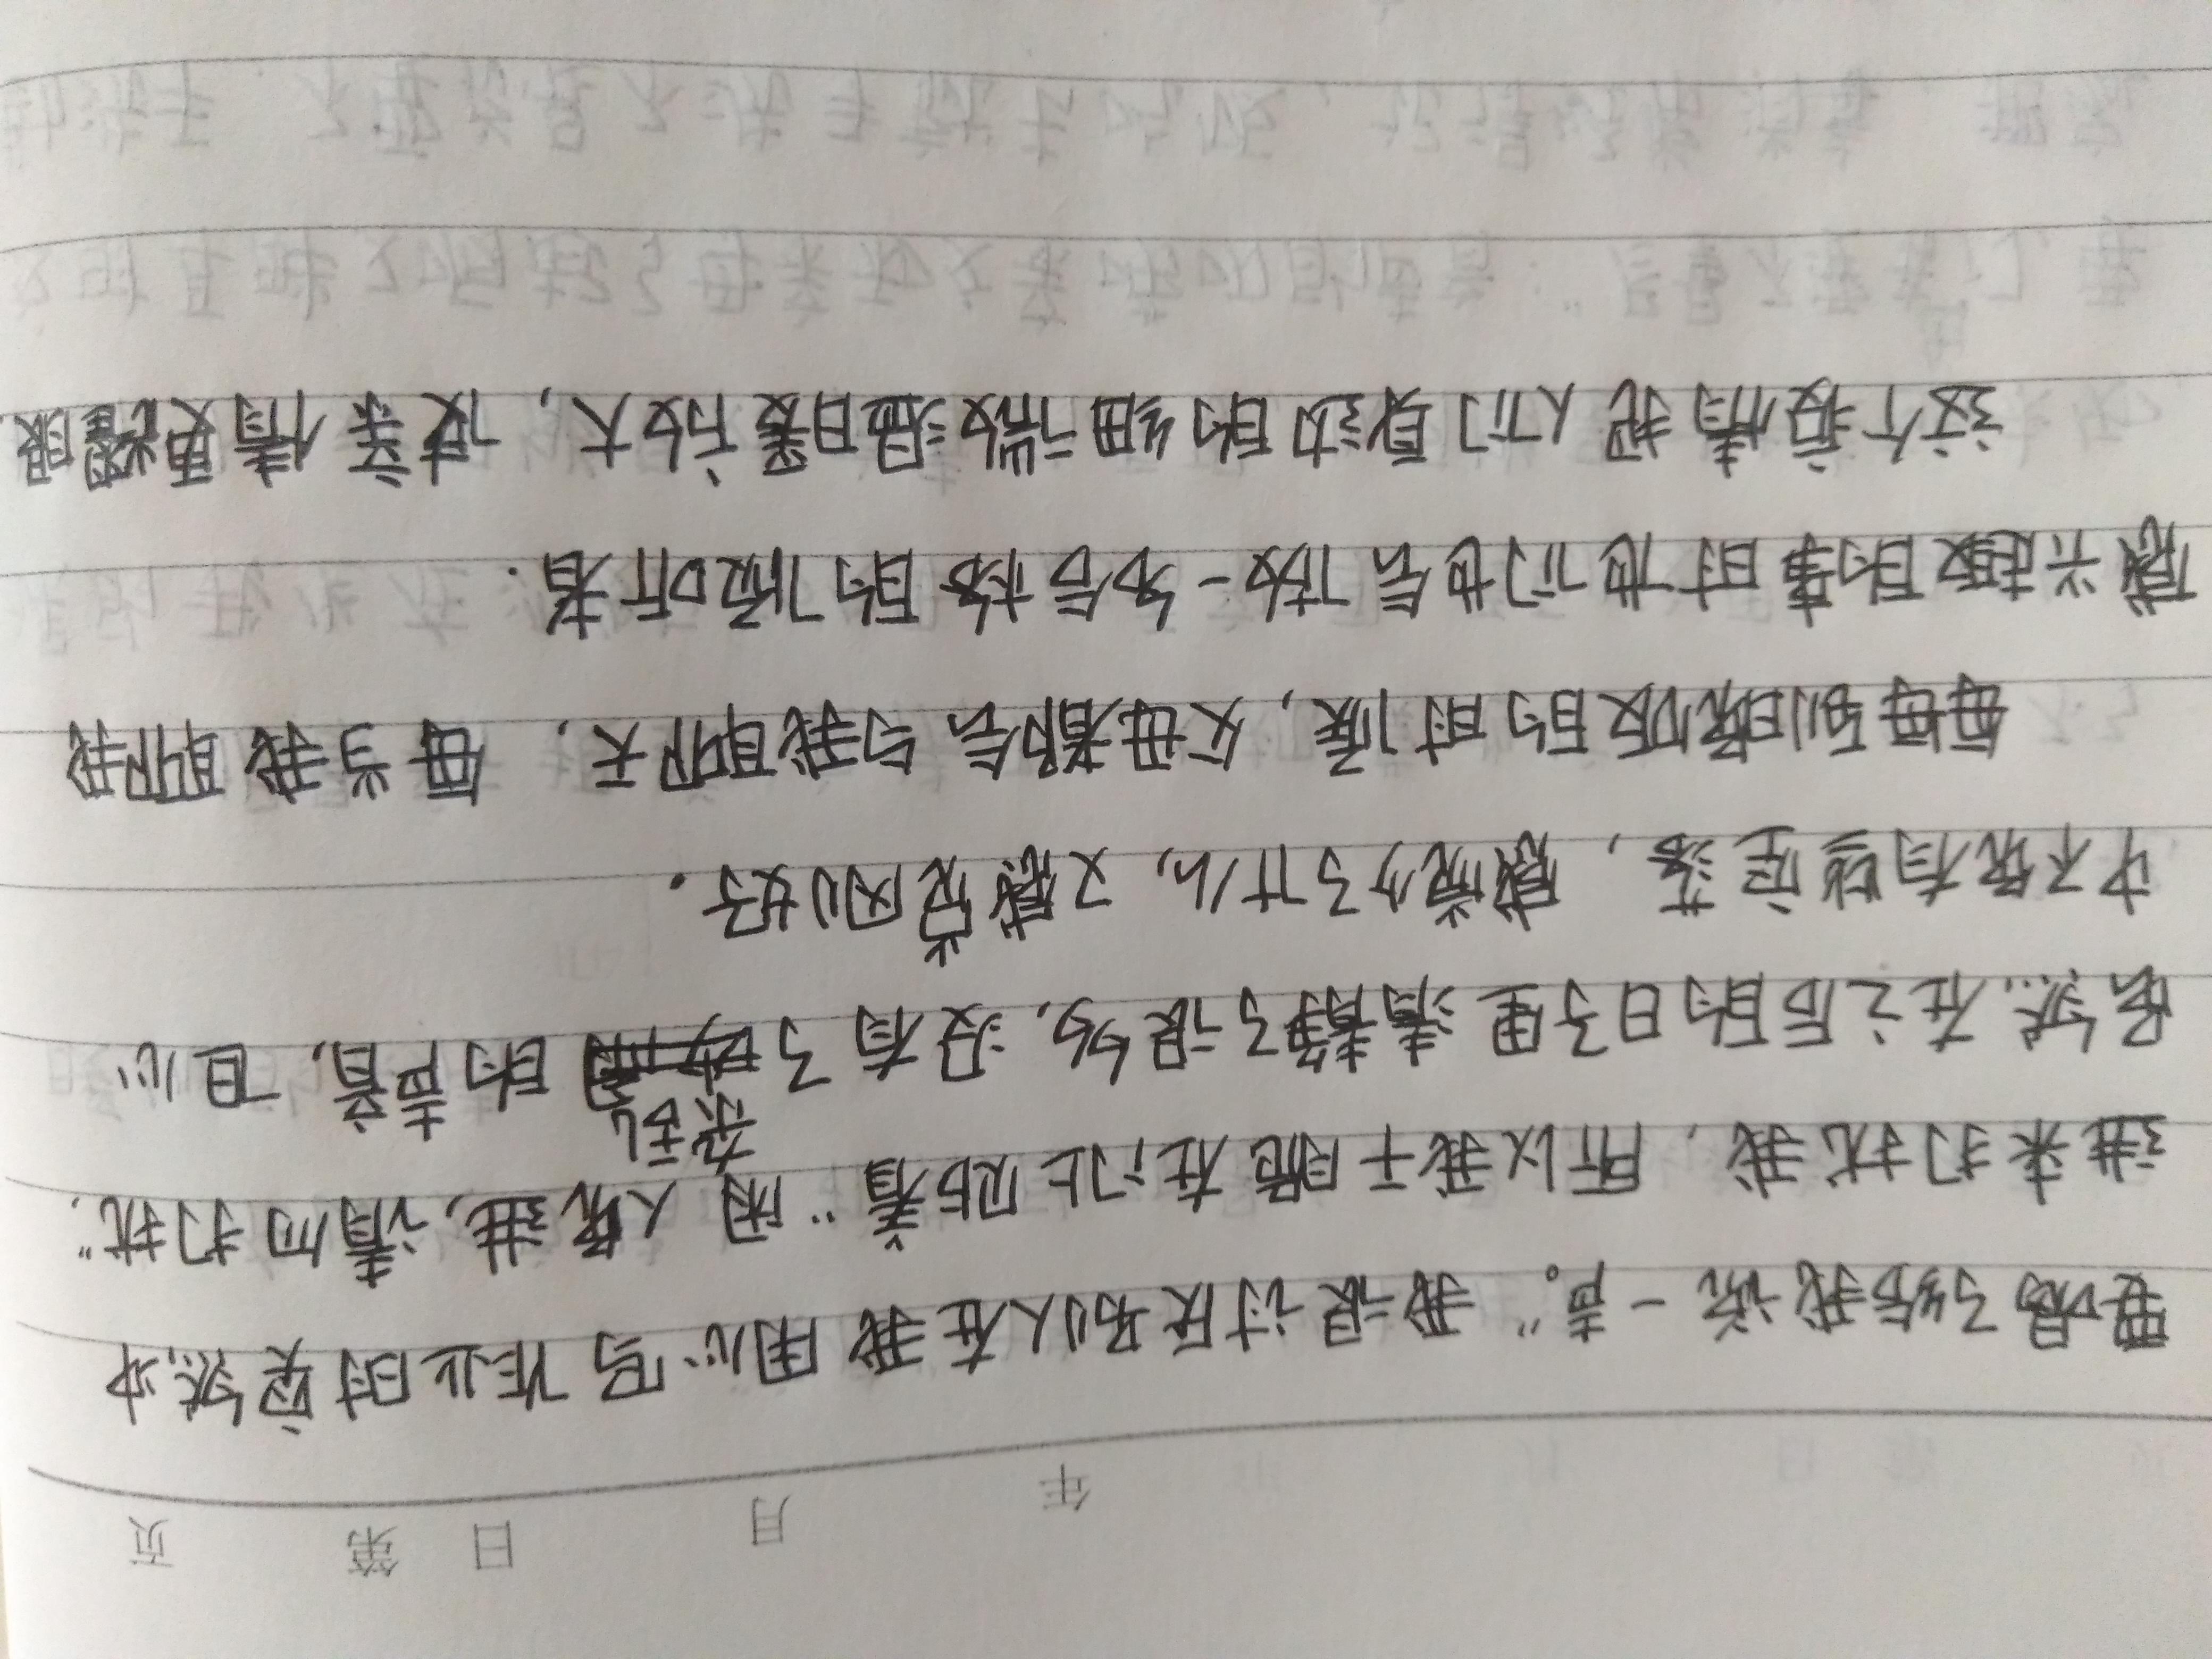 年 月 日 第 页
要喝了给我说一声。"我很讨厌别人在我用心写作业时突然冲
进来打扰我,所以我干脆在门上贴着"闲人免进,请勿打扰."
果然,在之后的日子里清静了很多,没有了杂乱的声音,但心
中不免有些空落,感觉少了什么,又感觉刚好.
每每到晚饭的时候,父母都会与我聊天,每当我聊我
感兴趣的事时他们也会放一多台格的倾听者.
这个疫情把人们身边的细微温暖放大,使亲情更耀眼.